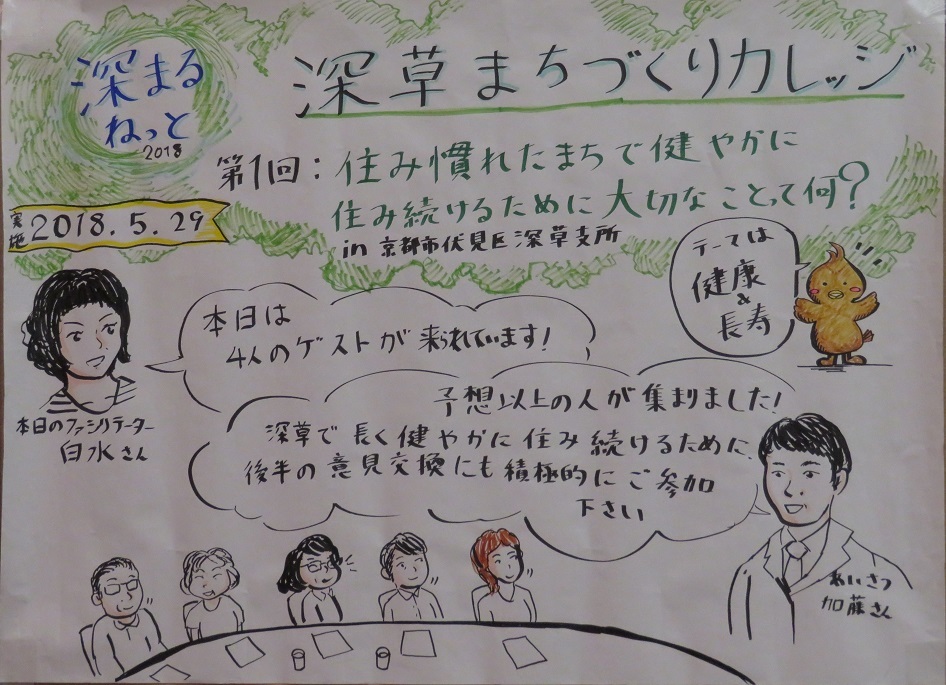 深まる
ねっと
2018
深草まちづくりカレッジ
第1回：住み慣れたまちで健やかに
住み続けるために大切なことって何？
in 京都市伏見区深草支所
実施
2018.5.29
テーマは
健康
&
長寿
本日は
4人のゲストが来られています！
本日のファシリテーター
白水さん
予想以上の人が集まりました！
深草で長く健やかに住み続けるために、
後半の意見交換にも積極的にご参加
下さい
あいさつ
加藤さん